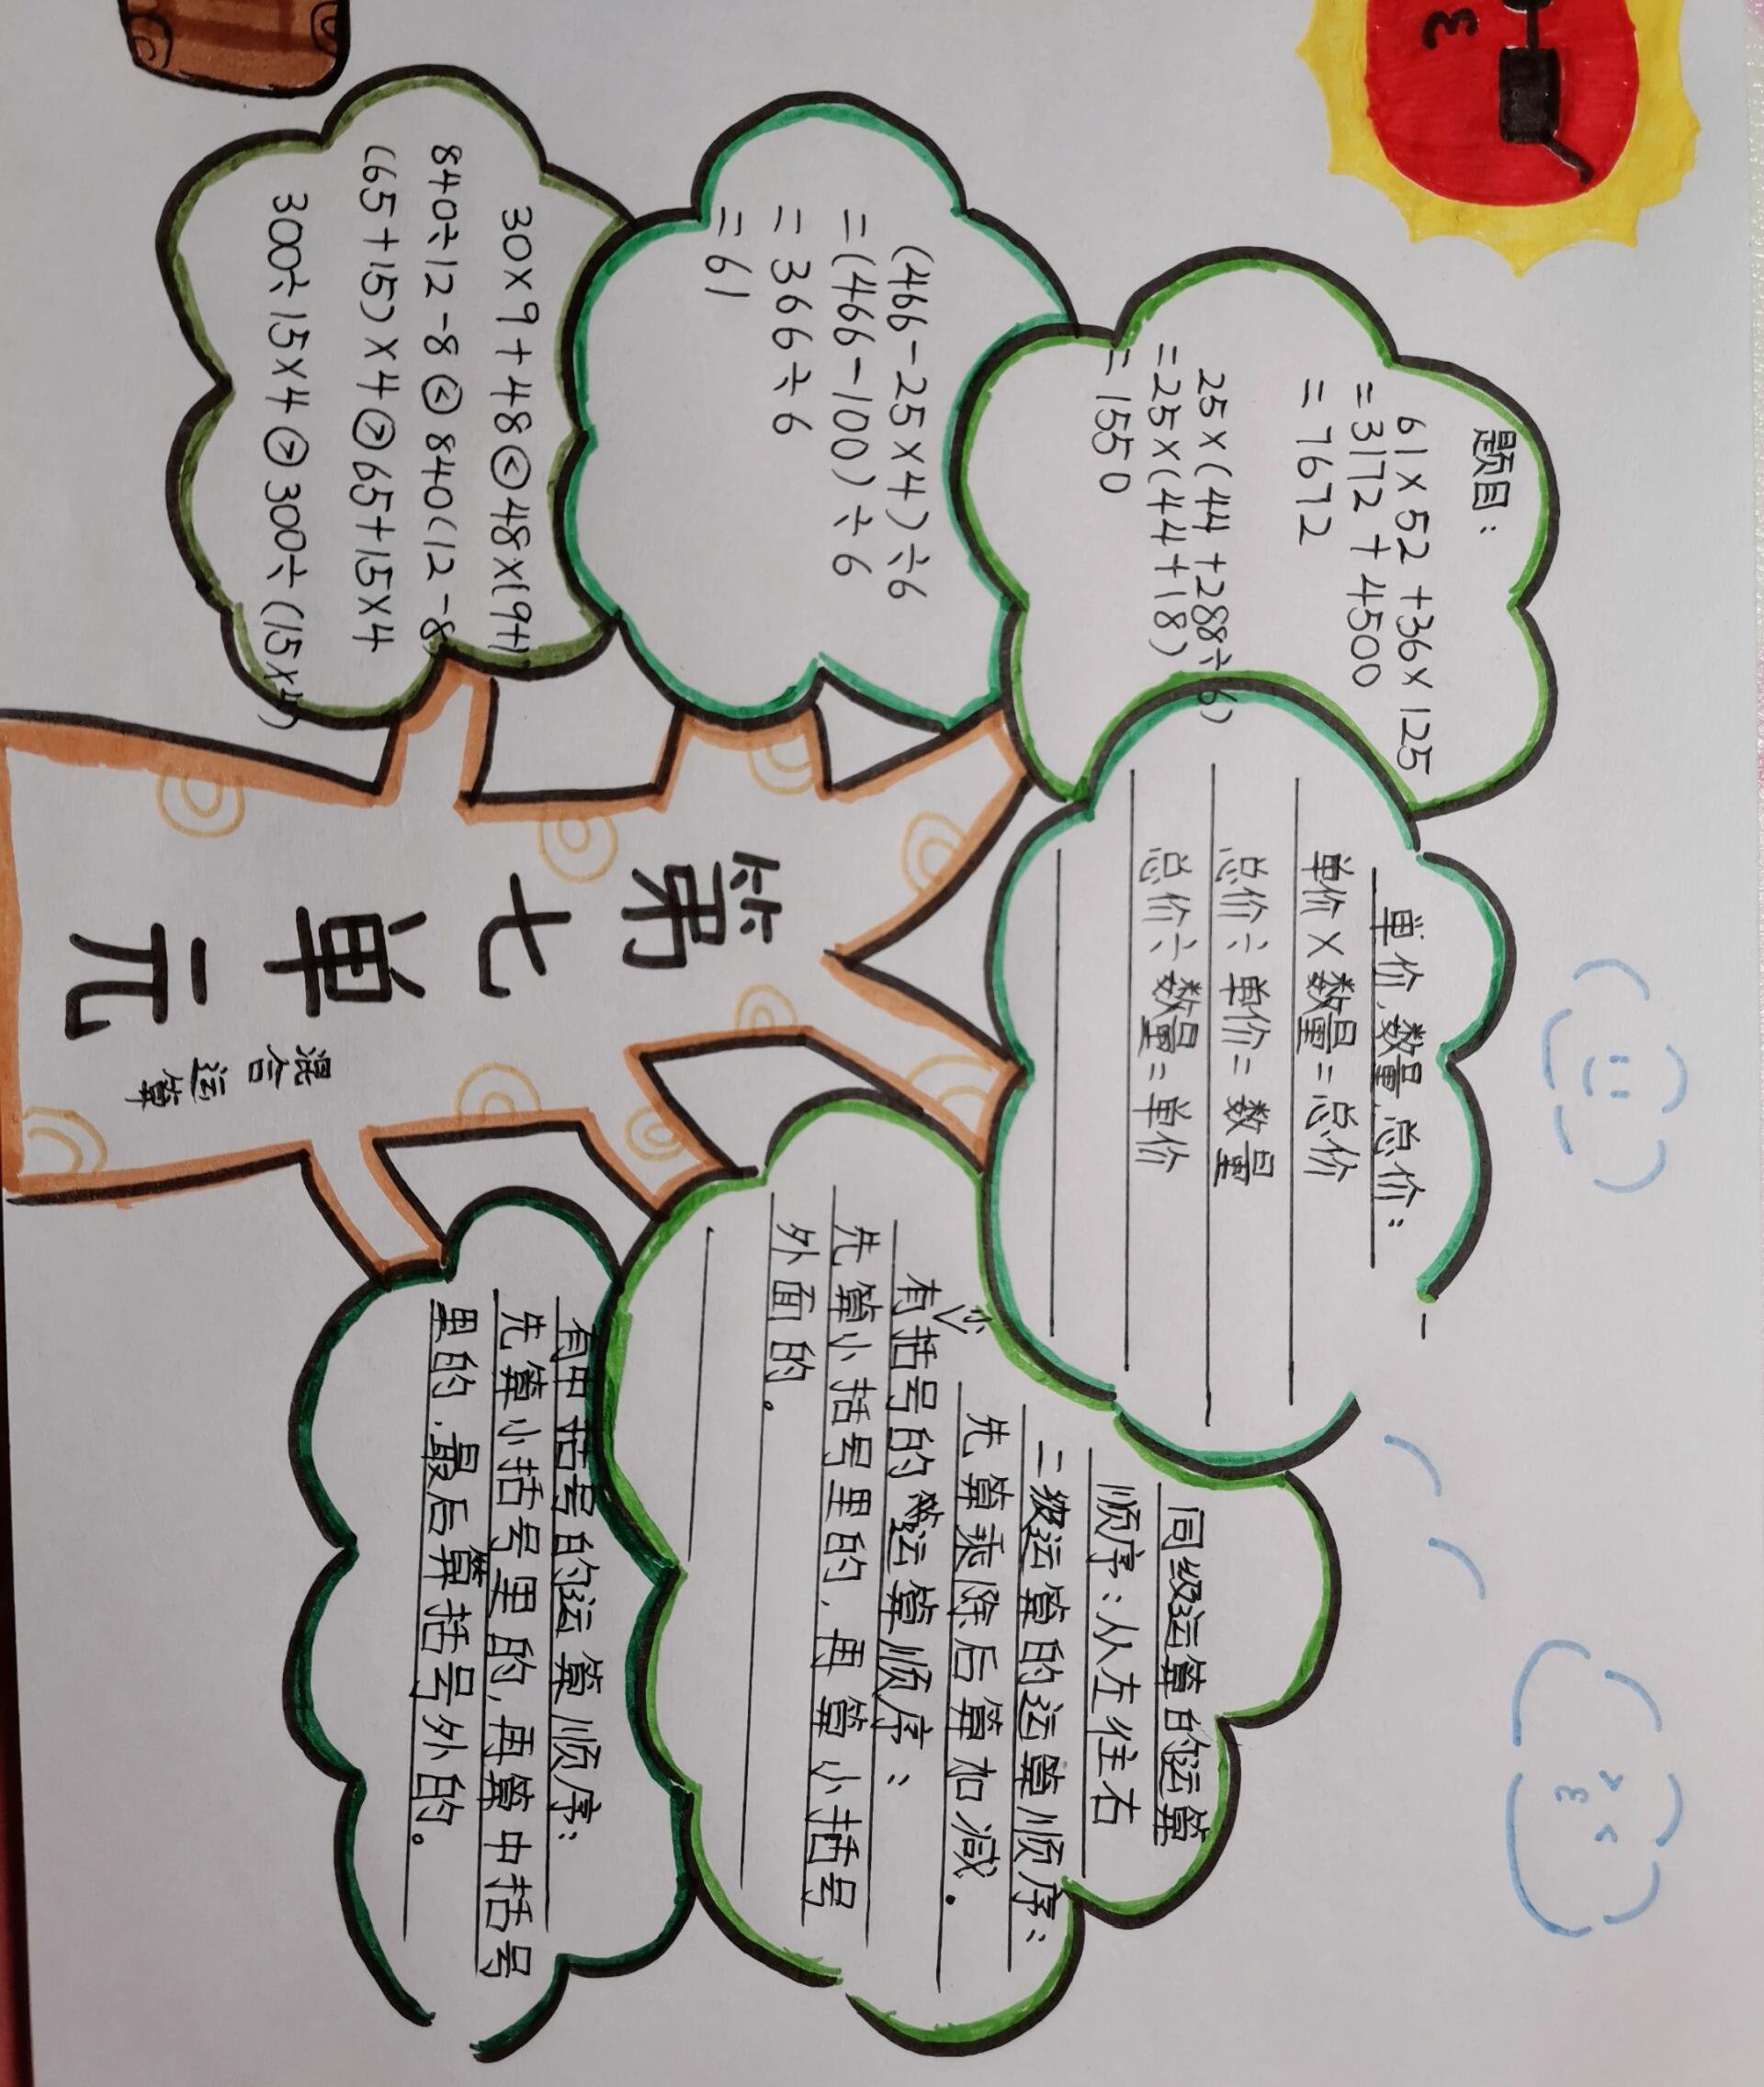 题目：
61×52+36×125
=3172+4500
=7672
25×(44+288÷6)
=25×(44+18)
=1550
(466-25×4)÷6
=(466-100)÷6
=366÷6
=61
30×9+48<48×(9+
840÷12-8<840(12-8
(65+15)×4>65+15×4
300÷15×4>300÷(15×4)
单价,数量,总价：
单价×数量=总价
总价÷单价=数量
总价÷数量=单价
同级运算的运算
顺序：从左往右
二级运算的运算顺序：
先算乘除后算加减.
有小括号的运算顺序：
先算小括号里的,再算小括号
外面的。
有中括号的运算顺序：
先算小括号里的,再算中括号
里的,最后算括号外的。
第七单元
混合运算
3